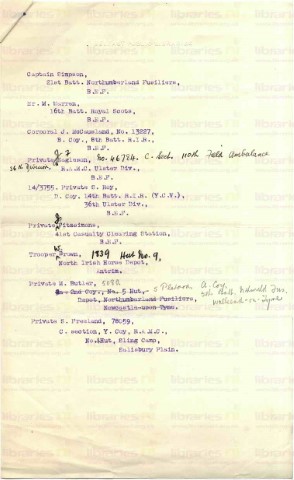 Captain Simpson,
21st Batt. Northumberland Fusiliers,
B.E.F.
Mr. W. Warren,
16th Batt. Royal Scots,
B.E.F.
Corporal J. McCausland, No. 13227,
B. Coy., 8th Batt. R.I.R.,
B.E.F.
Private No. 46784. C. Sect. 110th Field Ambulance
36th Division R.A.M.C. Ulster Div.,
B.E.F.
14/3755. Private S. Hoy,
D. Coy. 14th Batt. R.I.R. (Y.C.V.),
36th Ulster Div.,
B.E.F.
Private J Fitzsimons,
41st Casualty Clearing Station,
B.E.F.
Trooper W. Brown, 1839 Hut No. 9,
North Irish Horse Depot,
Antrim.
Private M. Butler, Platoon A. Coy,
2nd Coy., No. 5 Hut,
Depot, Northumberland Fusiliers,
Newcastle-upon Tyne. Wallsend-on-Tyne
Private S. Presland, 78059,
C. section, Y. Coy, R.A.M.C.,
Hut, Sling Camp,
Salisbury Plain.